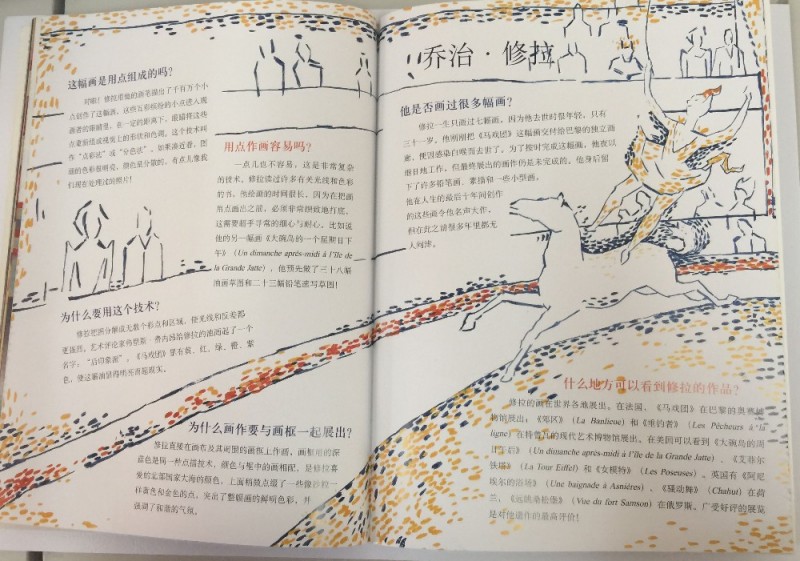 这幅画是用点组成的吗?
小点创作了这幅画,这些五彩缤纷的小点进入观
画者的眼睛里,在一定的距离下,眼睛将这些
点重新组成视觉上的形状和色调。这个技术叫
作“点彩法”或“分色法”。如果凑近看,图
们现在处理过的照片!
用点作画容易吗?
一点儿也不容易,这是非常复杂
的技术。修拉读过许多有关光线和色彩
的书。他绘画的时间很长,因为在把画
用点画出之前,必须非常细致地打底,
这需要超乎寻常的细心与耐心。比如说
他的另一幅画《大碗岛的一个星期日下
午》(Un dimanche après-midi à l'île de
la Grande Jatte),他预先做了三十八幅
油画草图和二十三幅铅笔速写草图!
为什么要用这个技术?
修拉把画分解成无数个彩点和区域,使光线和反差都
名字:“后印象派”。《马戏团》里有蓝、红、绿、橙、紫
色,使这幅油画得明亮而起眼。
为什么画作要与画框一起展出?
修拉直接在画布及其周围的画框上作画。画框用的深
蓝色是同一种点描技术,颜色与框中的画相配。
黄色和金色的点,突出了整幅画的鲜明色彩,并
强调了和谐的气氛。
乔治·修拉
他是否画过很多幅画?
修拉一生只画过七幅画。因为他去世时很年轻,只有
三十一岁,他刚刚把《马戏团》这幅画交付给巴黎的独立画
廊,便因感染白喉而去世了。为了按时完成这幅画,他夜以
继日地工作,但最终展出的画作仍是未完成的。他身后留
下了许多铅笔画、素描和一些小型画。
他在人生的最后十年间创作
的这些画令他名声大作,
但在此之前很多年里都无
人问津。
什么地方可以看到修拉的作品?
修拉的画在世界各地展出。在法国,《马戏团》在巴黎的奥赛博
物馆展出;《郊区》(La Banlieue)和《垂钓者》(Les Pêcheurs à la
ligne)在特鲁瓦的现代艺术博物馆展出。在美国可以看到《大碗岛的周
日午后》(Un dimanche après-midi à l'île de la Grande Jatte)、《艾菲尔
铁塔》(La Tour Eiffel)和《女模特》(Les Poseuses),英国有《阿尼
埃尔的浴场》(Une baignade à Asnières),《骚动舞》(Chahut)在荷
兰,《远眺桑松堡》(Vue du fort Samson)在俄罗斯。广受好评的展览
是对他画作的最高评价!